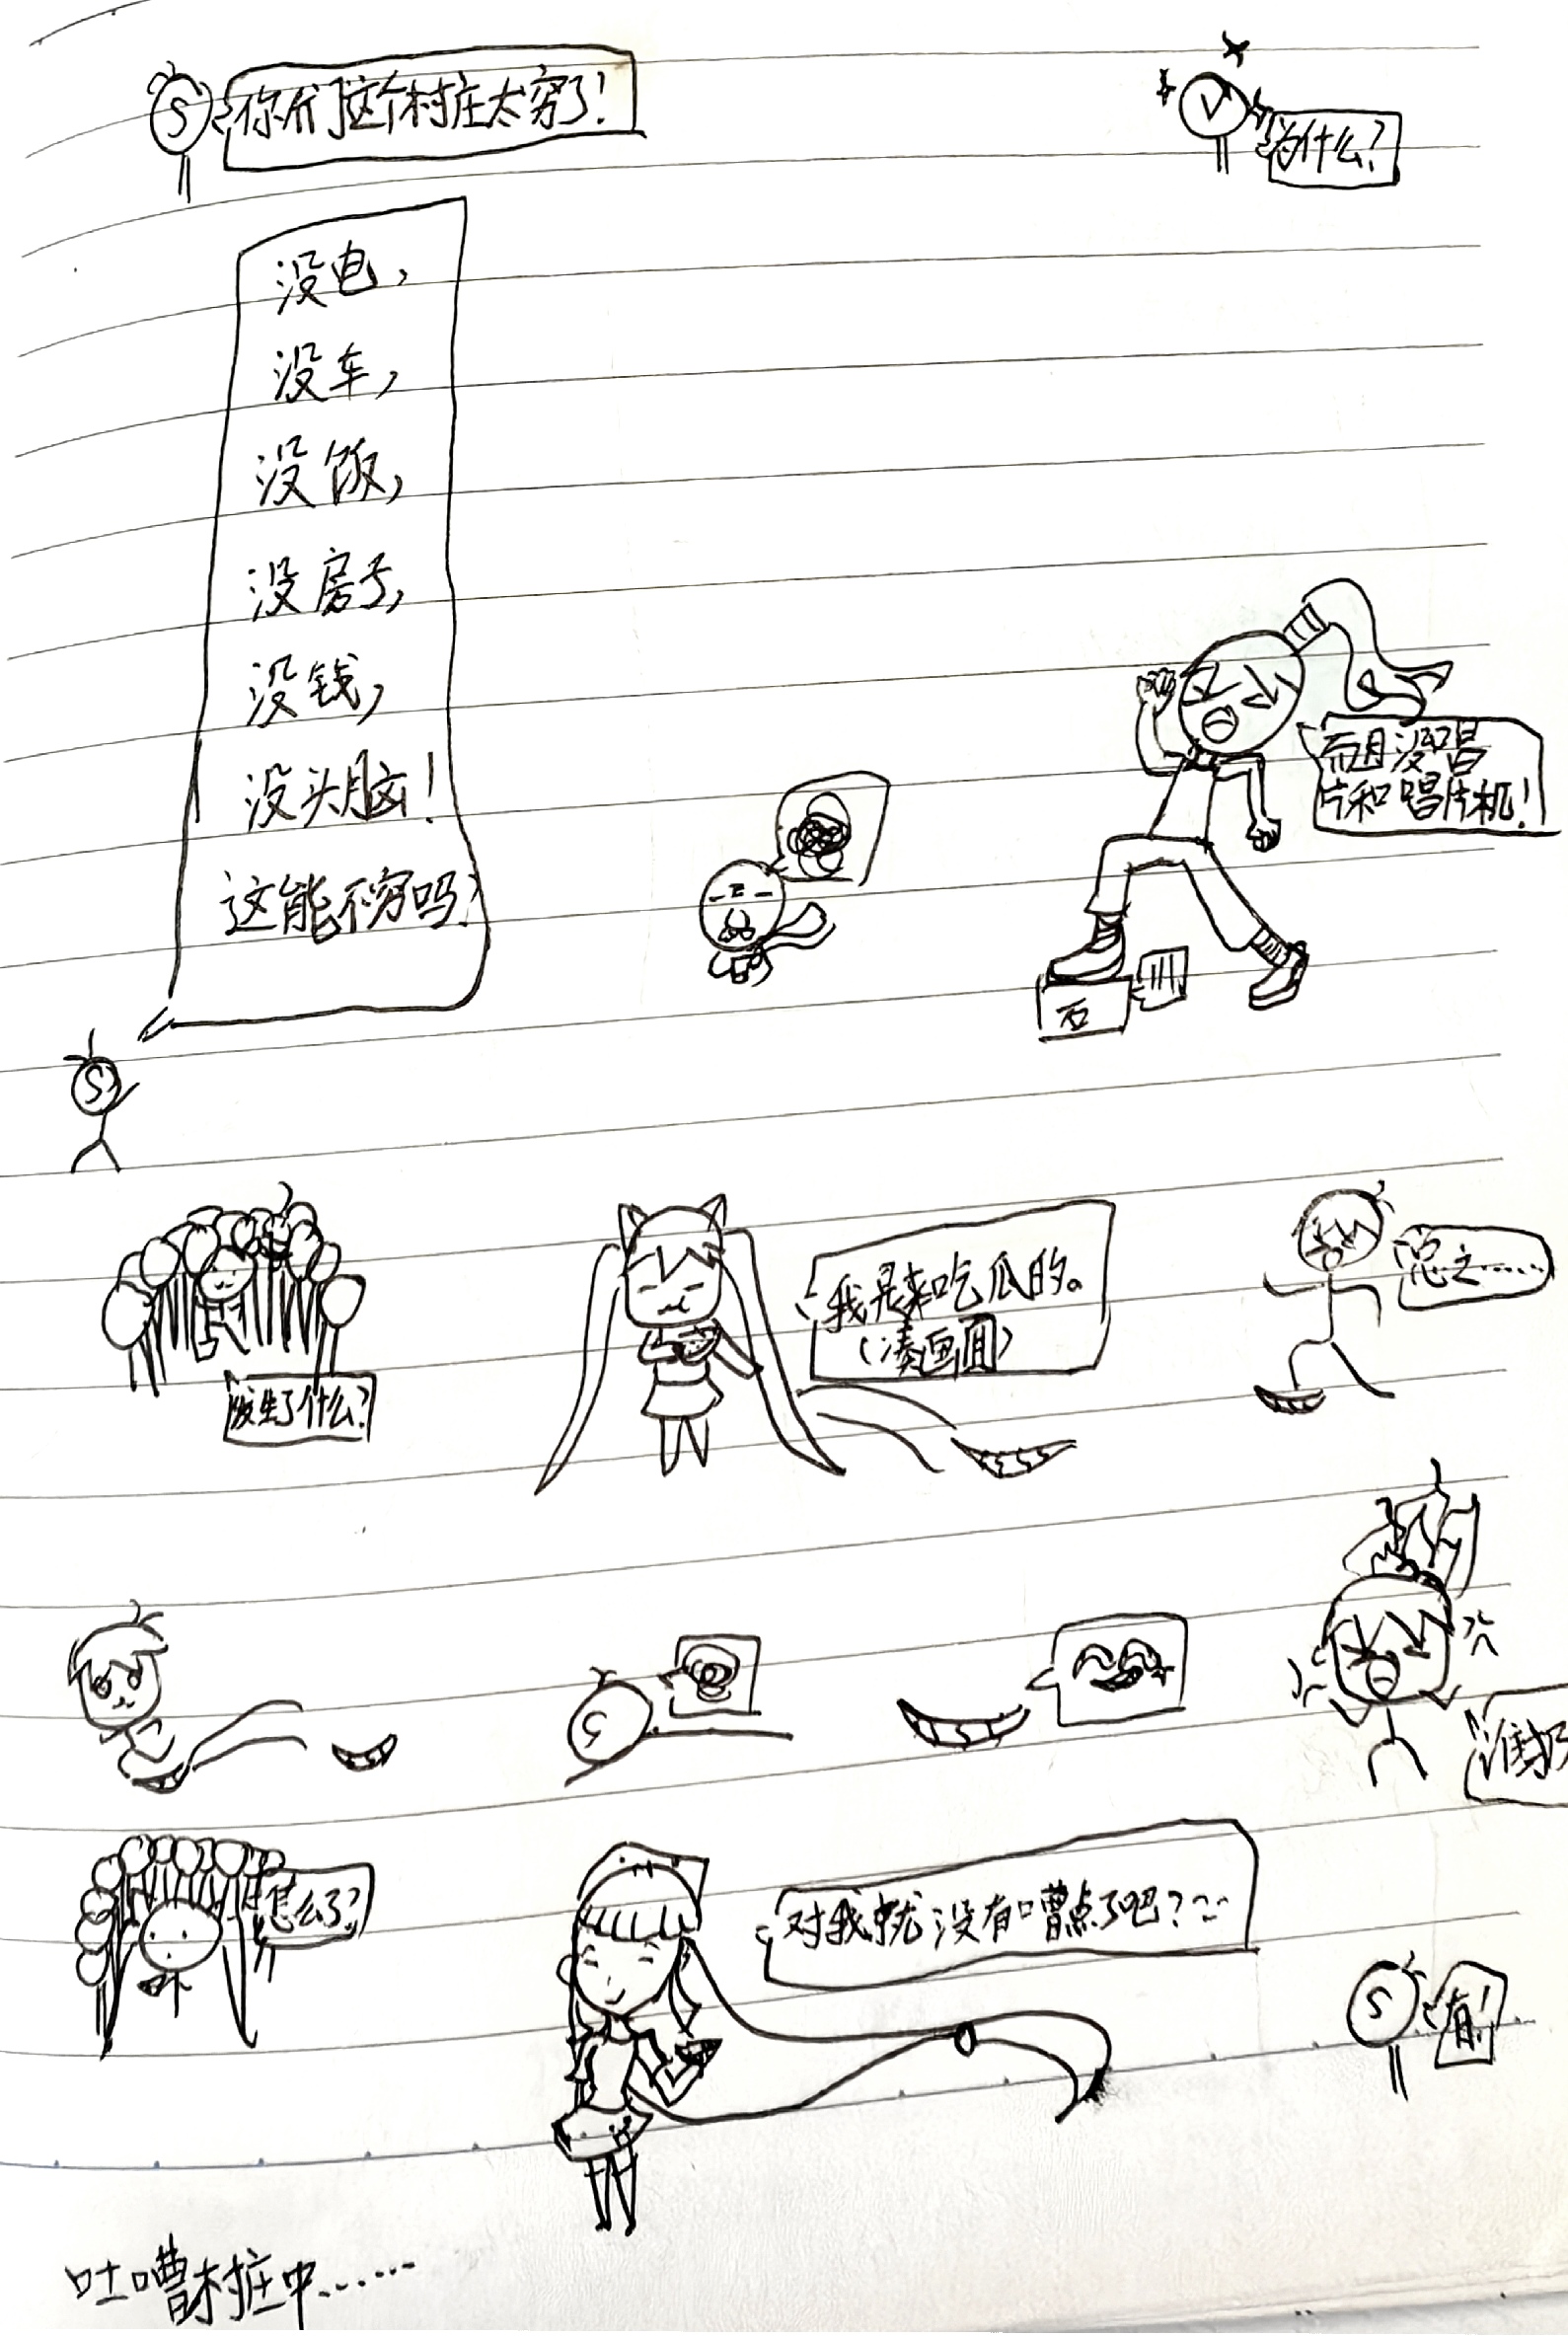 S
你们这个村庄太穷了!
V
为什么?
没电,
没车,
没饭,
没房子,
没钱,
没头脑!
这能不穷吗?
S
而且没唱
片和唱片机!
石
发生了什么?
我是来吃瓜的。
(凑画面)
总之……
S
谁扔
怎么了?
对我就没有嘈点了吧?
S
有!
吐嘈村庄中……